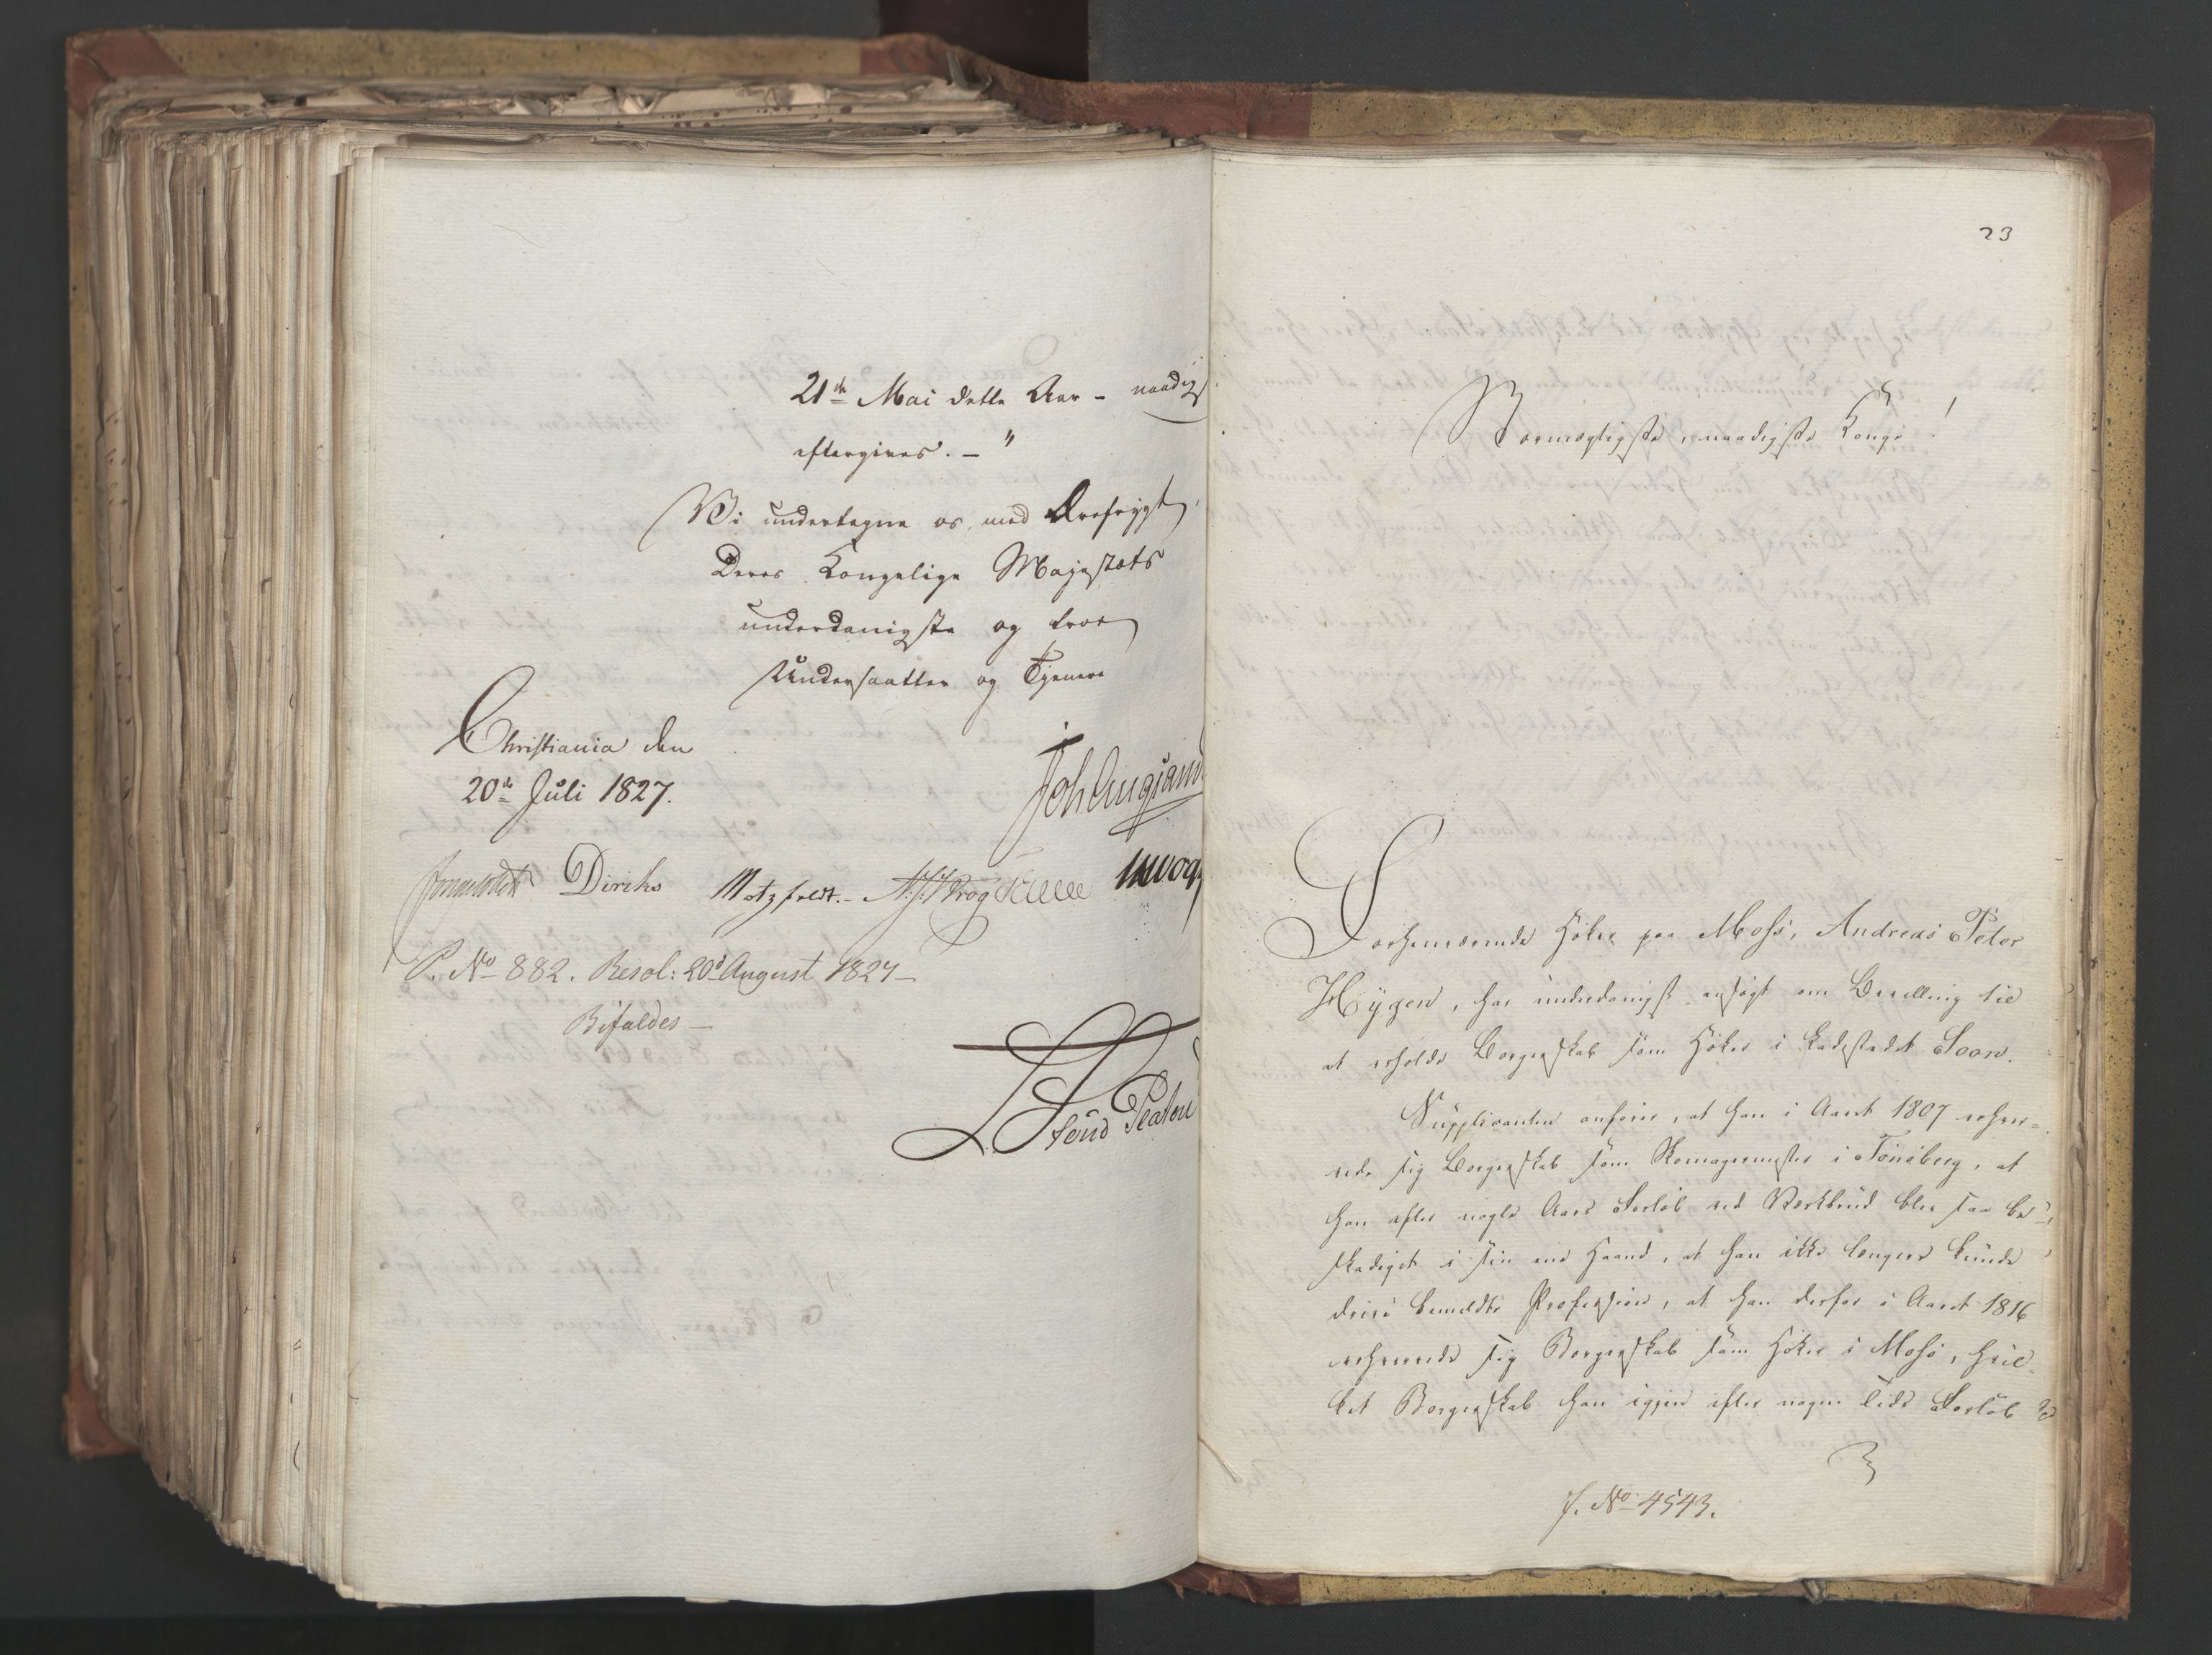 21de Mai dette Aar – naadigst
eftergives. – "
Vi undertegne os, med Ærefrygt,
Deres Kongelige Majestæts
underdanigste og troe
Undersaatter og Tjenere
Christiania den
20de Juli 1827.
Diriks Motzfeldt. –
P. No 882. Resol: 20d August 1827 –
Bifaldes –
23
Stormægtigste, naadigste Konge!
Forhenværende Høker paa Moss, Andreas Peter
Hÿgen, har underdanigst ansøgt om Bevilling til
at erholde Borgerskab som Høker i Ladestedet Soon.
Supplicanten anfører, at han i Aaret 1807 erhver=
vede sig Borgerskab som Skomagermester i Tønsberg, at
han efter nogle Aars Forløb ved Værkbrud blev saa be=
skadiget i sin ene Haand, at han ikke længere kunde
drive bemeldte Profession, at han derfor i Aaret 1816
erhvervede sig Borgerskab som Høker i Moss, hvil=
ket Borgerskab han igjen efter nogen Tids Forløb
J. No 4543.